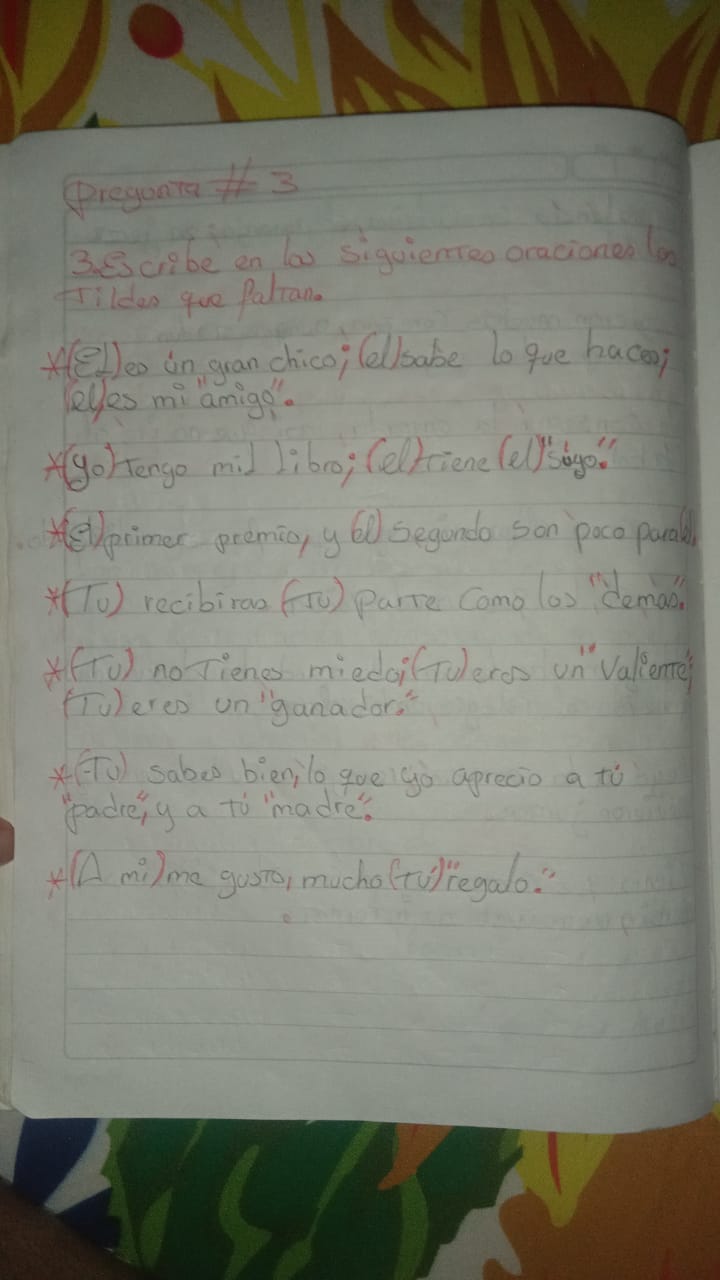 Pregunta # 3
3. Escribe en las siguientes oraciones las
Tildes que Faltan.
*(El) es ún gran chico; (el) sabe lo que haces;
(el) es mi "amigo".
*(yo) Tengo mil libro; (el) tiene (el) "suyo."
*(El) primer premio, y (El) Segundo son poco para el.
*(Tu) recibiras (Tu) Parte Como los "demas."
*(Tu) no Tienes miedo; (Tu) eres un "Valiente";
(Tu) eres un "ganador."
*(Tu) sabes bien, lo que yo aprecio a tú
"padre", y a tú "madre".
*(A mi) me gusto, mucho (tu) "regalo."